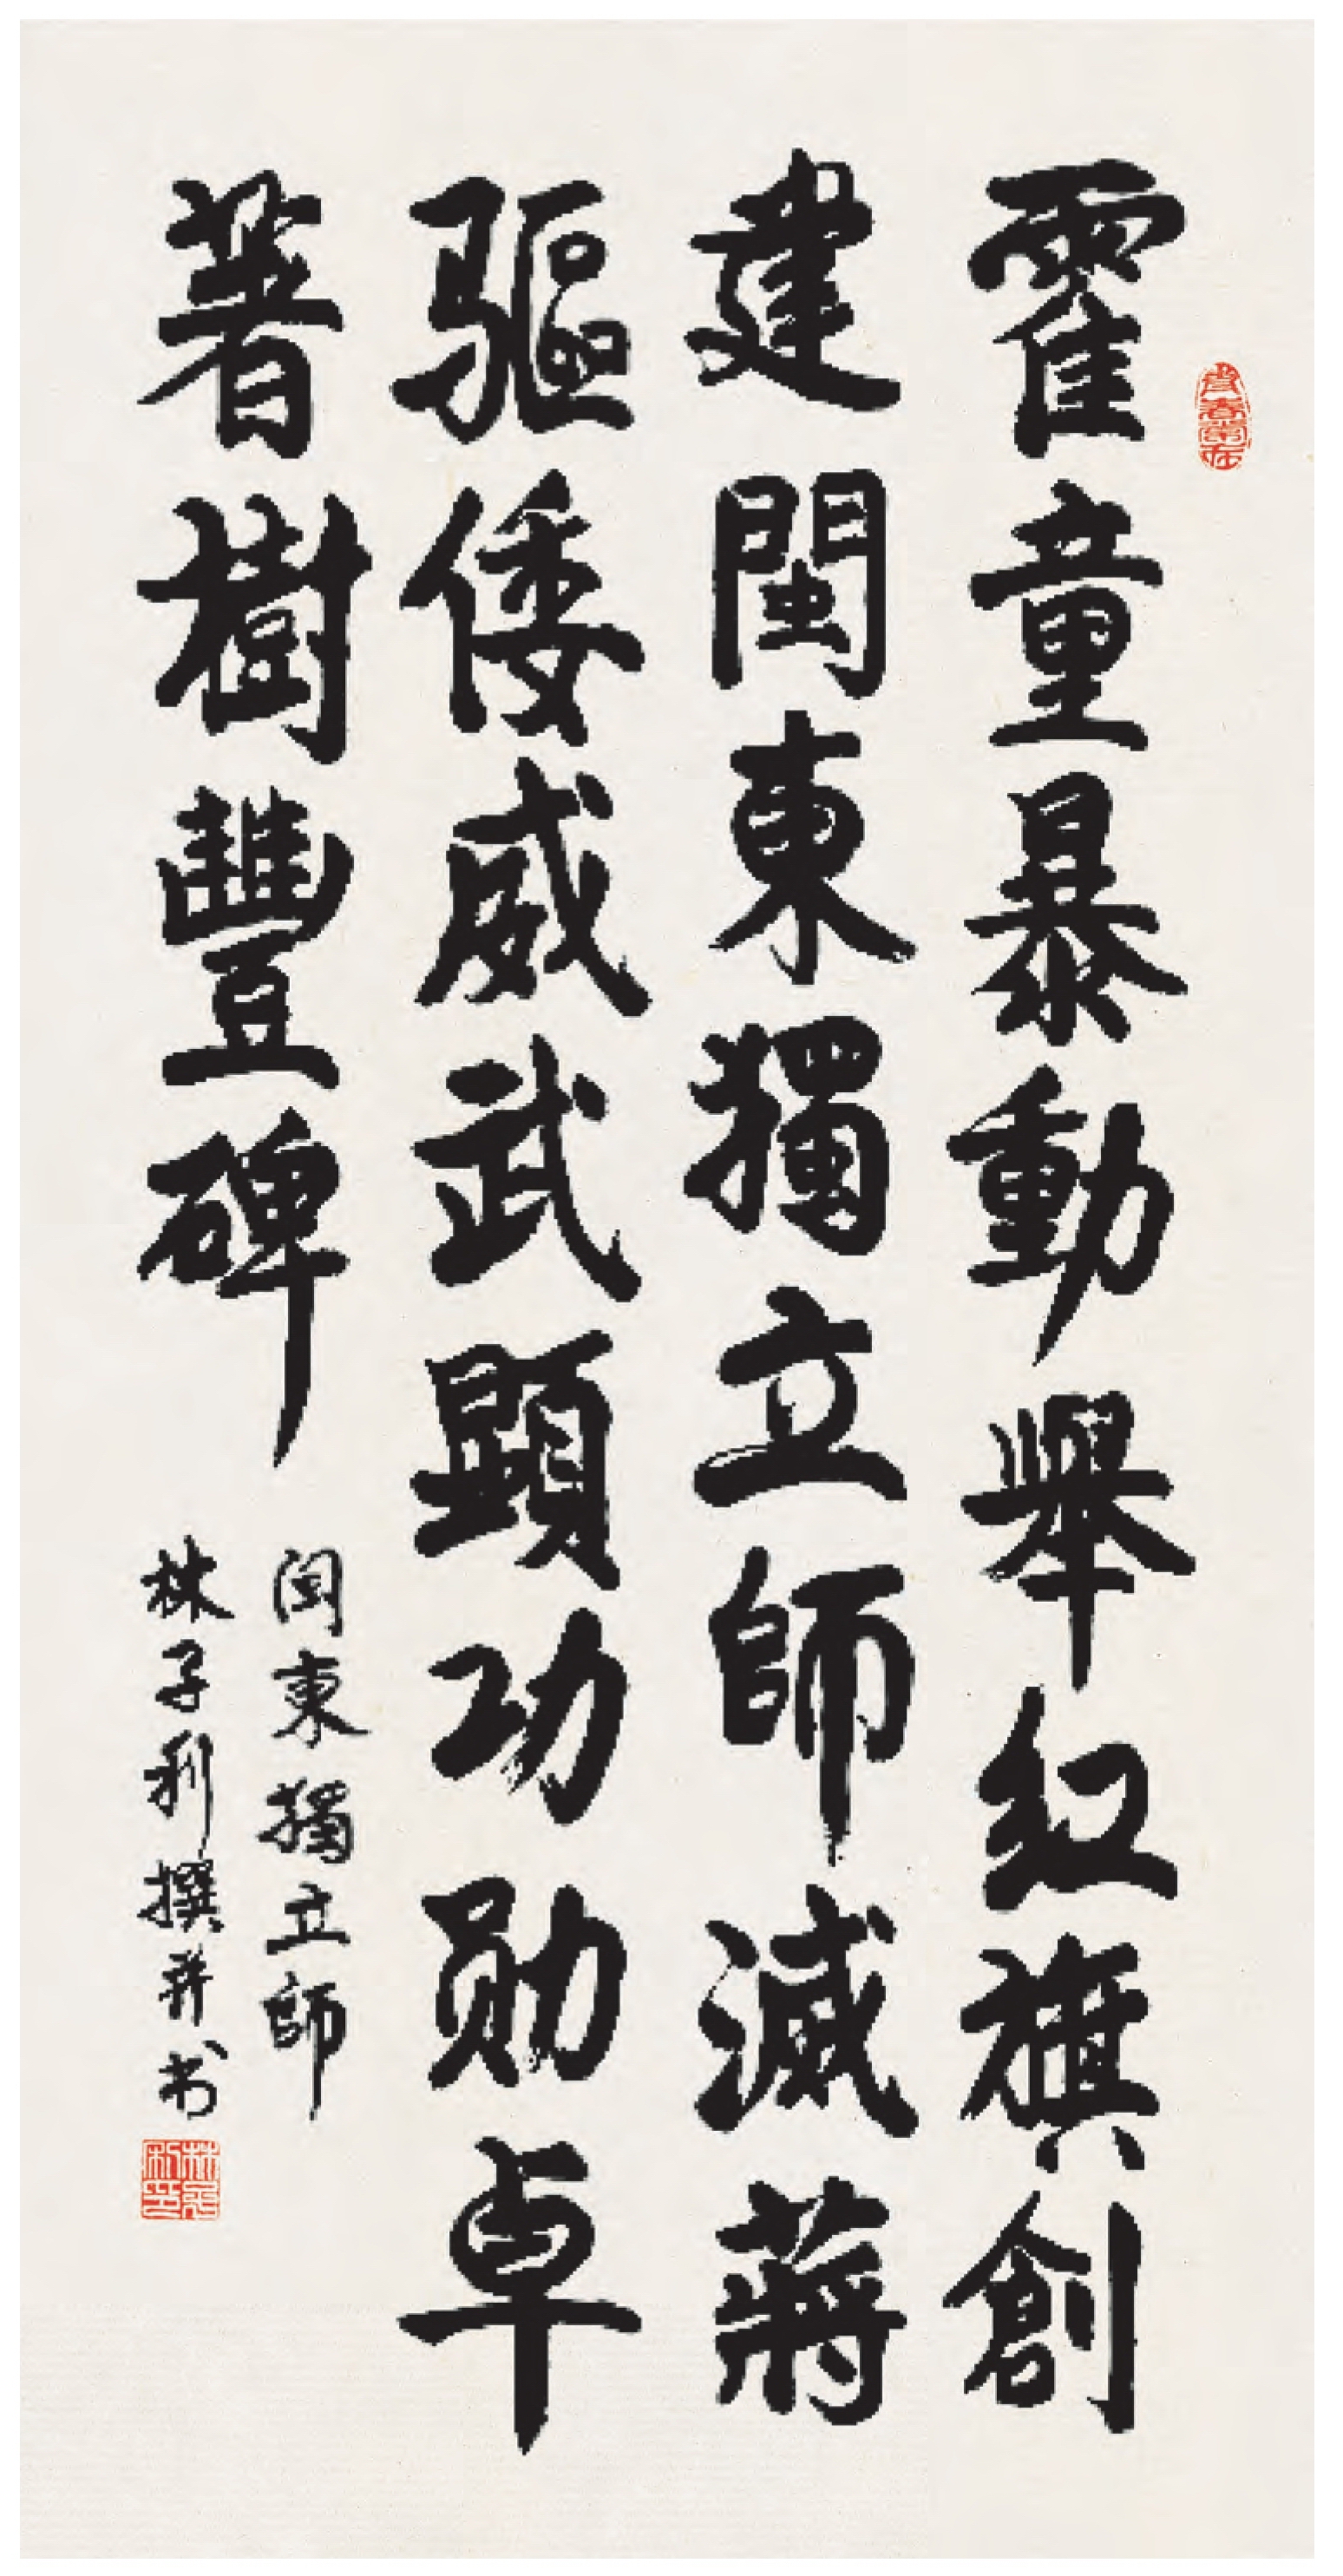 霍童暴動舉紅旗創
建閩東獨立師滅蔣
驅倭威武顯功勛卓
著樹豐碑
閩東獨立師
林子利撰并书
青春常在
林子利印